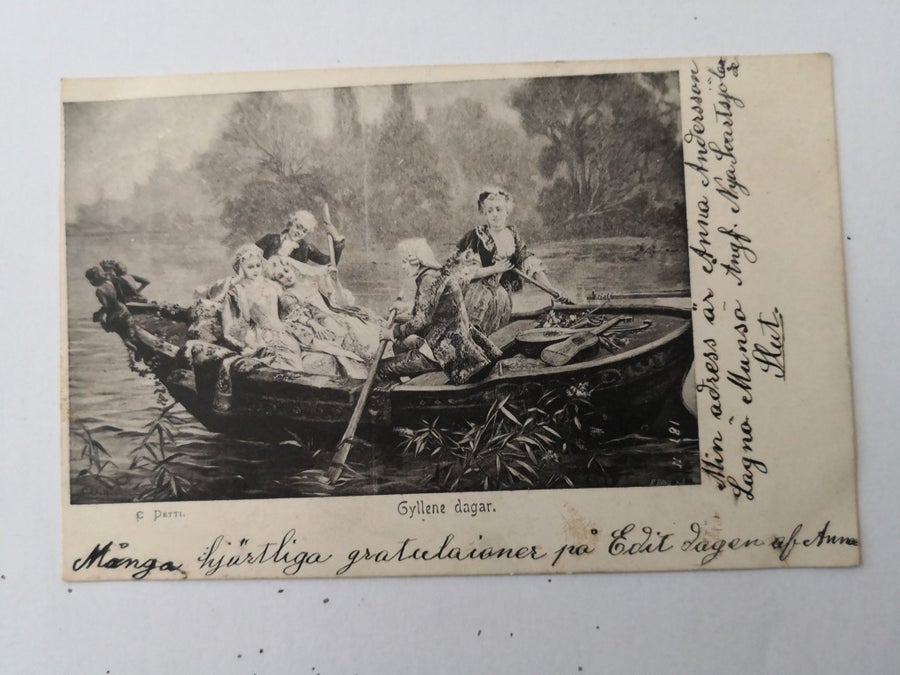 C PETTI.
Gyllene dagar.
Många hjärtliga gratulaioner på Edit dagen af Anna
Min adress är Anna Andersson
Lagnö Munsö Angf. Nya Svartsjölan
de
Slut.